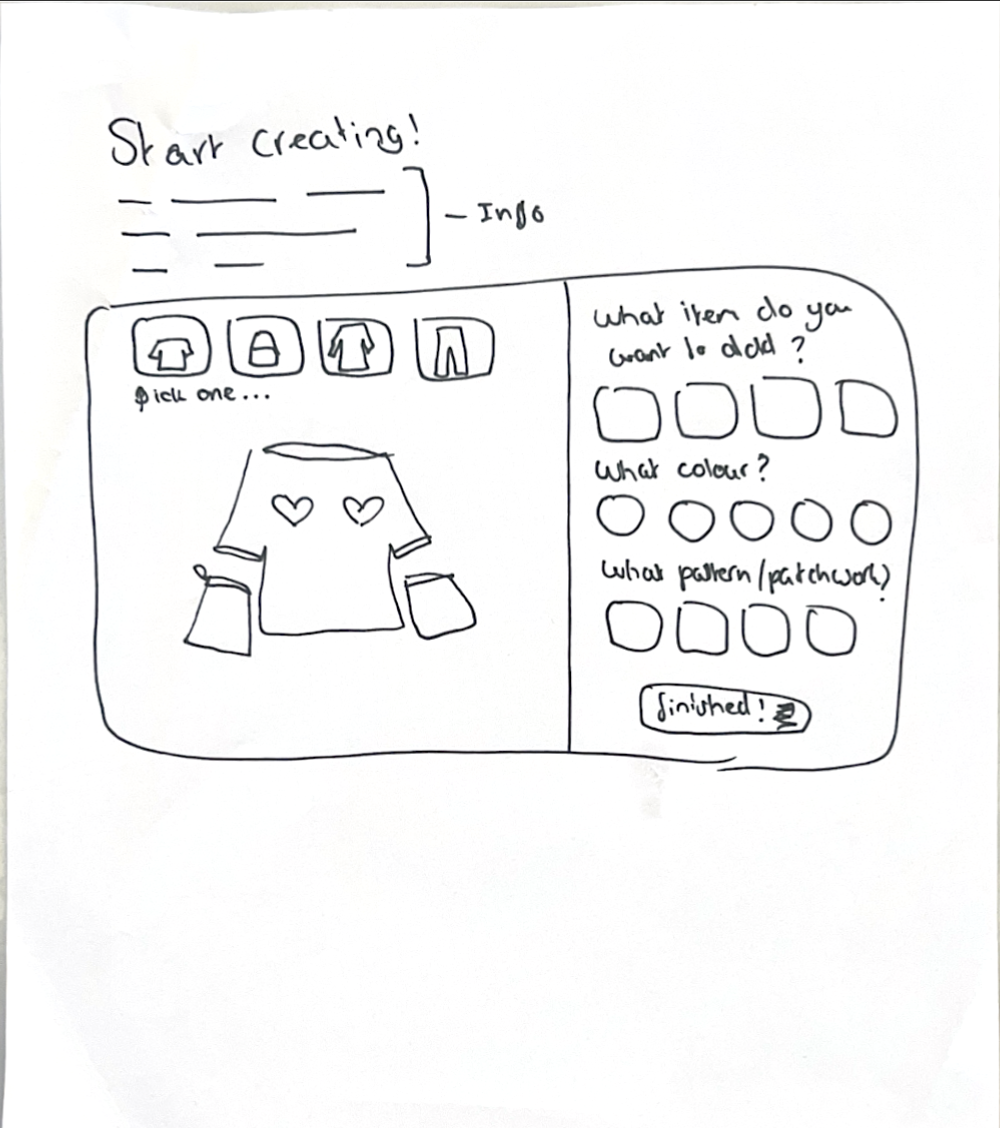 Start creating!
- Info
Pick one...
What item do you
want to add?
What colour?
What pattern/patchwork?
finished!